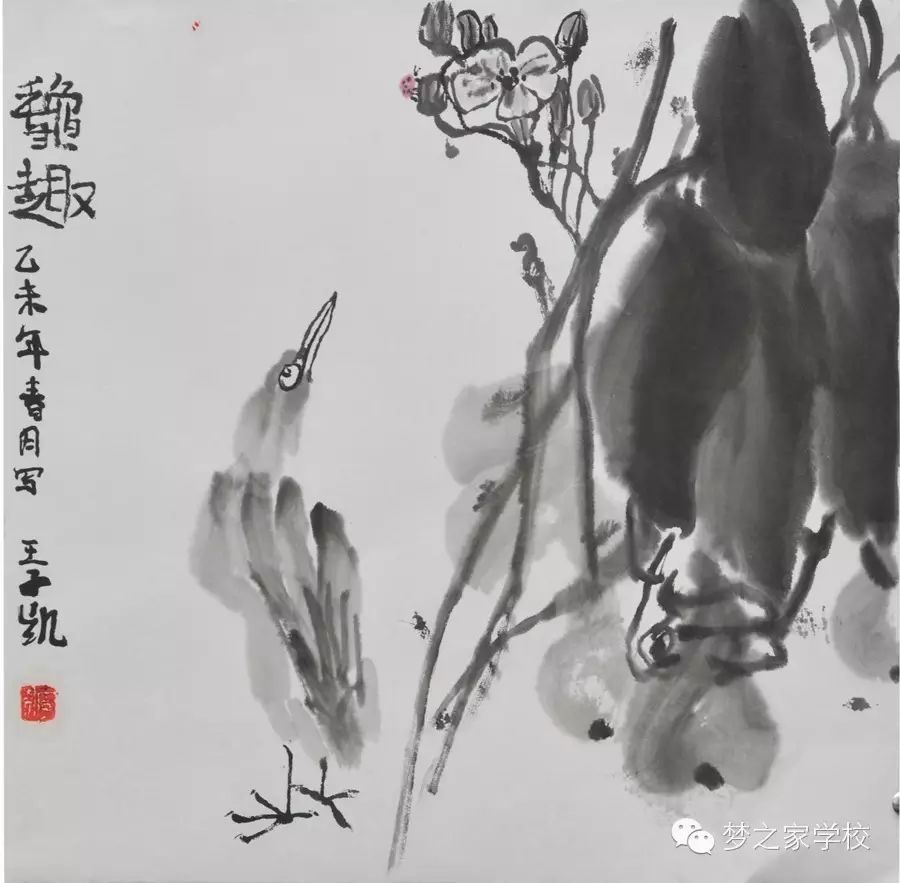 趣
乙未年春月写 王子凯
梦之家学校